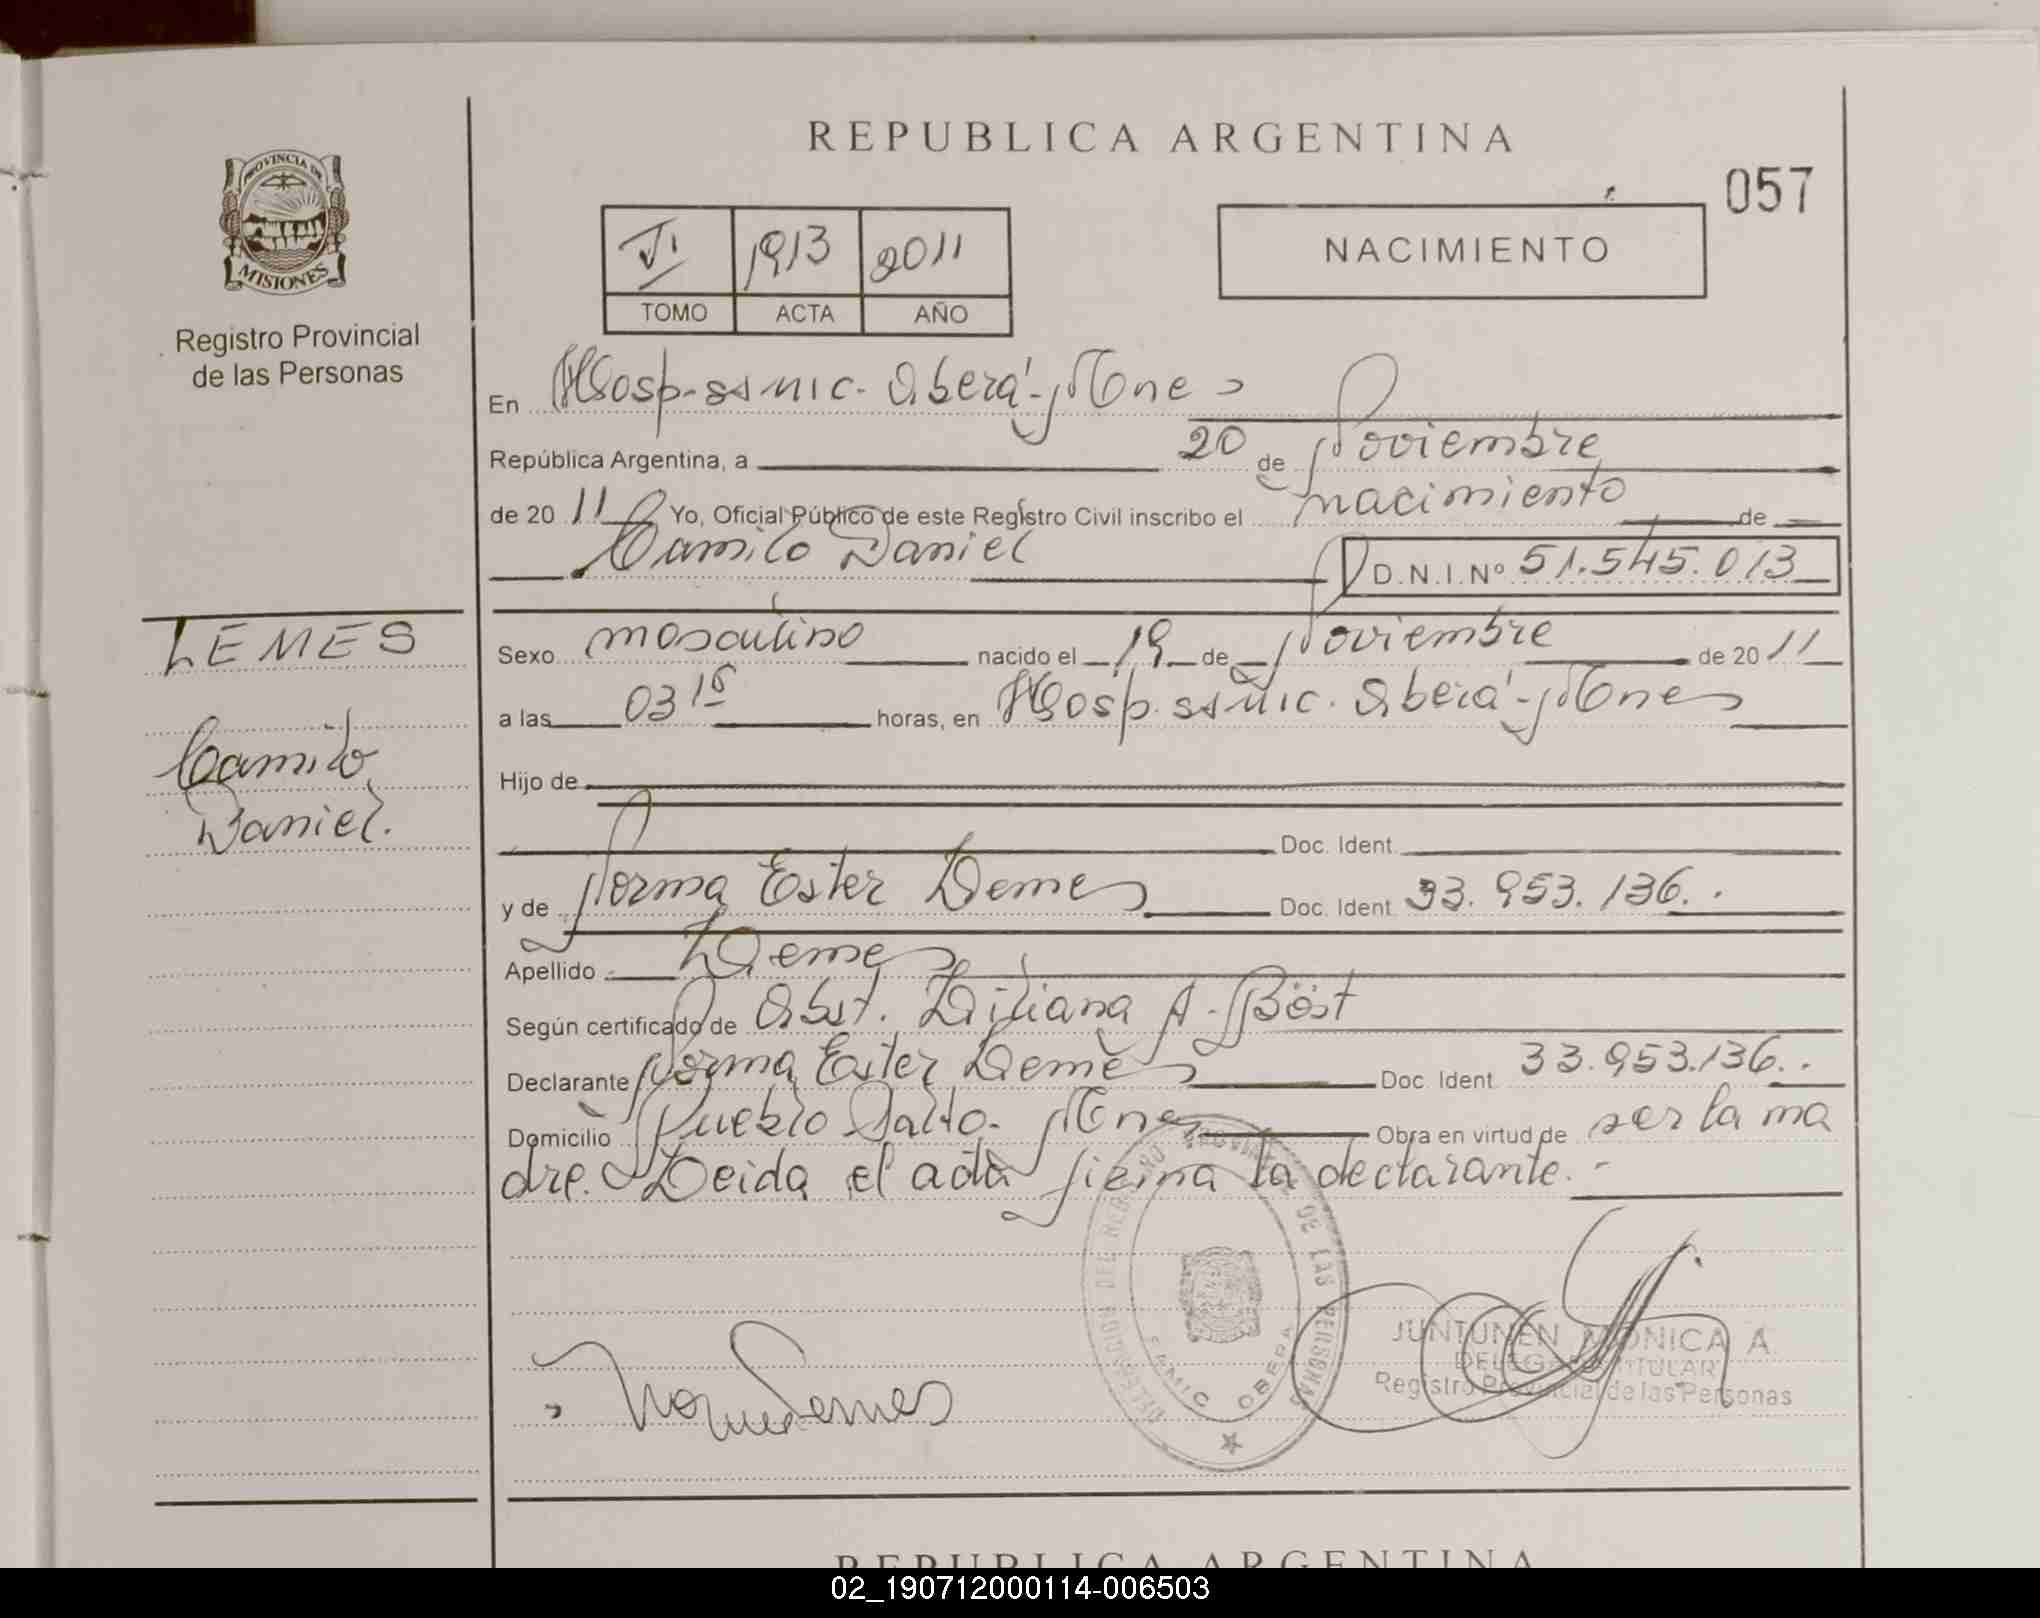 REPUBLICA ARGENTINA
057
PROVINCIA DE
MISIONES
Registro Provincial
de las Personas
VI 1913 2011
TOMO ACTA AÑO
NACIMIENTO
En Hosp. ss mic. Oberá - Mnes
República Argentina, a 20 de Noviembre
de 2011 Yo, Oficial Público de este Registro Civil inscribo el nacimiento de
Camilo Daniel D.N.I. Nº 51.545.013
LEMES
Camilo
Daniel.
Sexo masculino nacido el 19 de Noviembre de 2011
a las 03 15 horas, en Hosp. ss mic. Oberá - Mnes
Hijo de
Doc. Ident.
y de Norma Ester Lemes Doc. Ident. 33.953.136..
Apellido Lemes
Según certificado de Obst. Liliana A. Böst
Declarante Norma Ester Lemes Doc. Ident. 33.953.136..
Domicilio Pueblo Salto. Mnes Obra en virtud de ser la ma
dre. Leida el acta firma la declarante.-
DELEGACION DEL REGISTRO PROVINCIAL DE LAS PERSONAS
OBERA
Lemes
JUNTUNEN MONICA A.
DELEGADA TITULAR
Registro Provincial de las Personas
REPUBLICA ARGENTINA
02_190712000114-006503